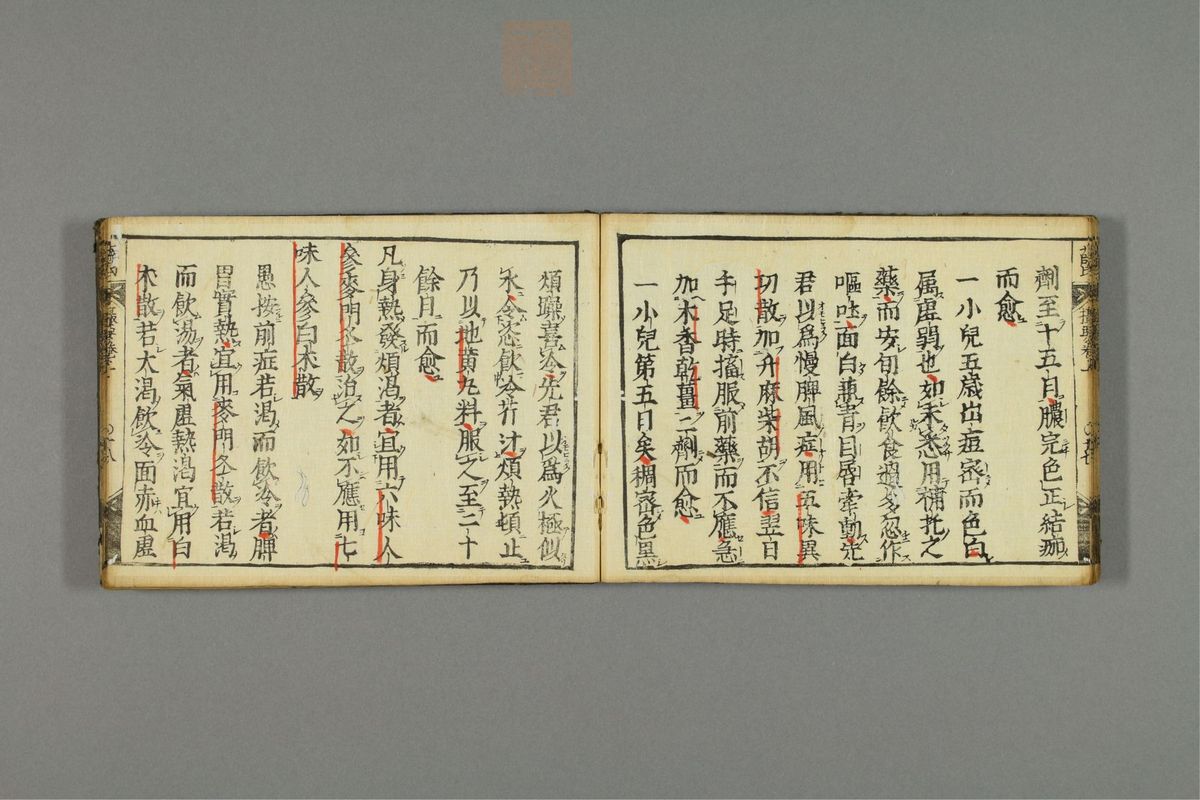 劑至十五日膿完色正結痂
而愈
一小兒五歳出痘密而色白
属虚弱也如末悉用補托之
藥而安旬餘飲食過多忽作
嘔吐面白兼青目唇牽動先
君以爲慢脾風症用五味異
功散加升麻柴胡不信翌日
手足時搐服前藥而不應急
加木香乾薑二劑而愈
一小兒第五日矣稠密色黒
煩躁喜冷先君以爲火極似
水令恣飲冷芥汁煩熱頓止
乃以地黄丸料服之至二十
餘日而愈
凡身熱發煩渇者宜用六味人
參麥門冬散治之如不應用七
味人參白朮散
愚按前症若渇而飲冷者脾
胃實熱宜用麥門冬散若渇
而飲湯者氣虚熱渇宜用白
朮散若大渇飲冷面赤血虚